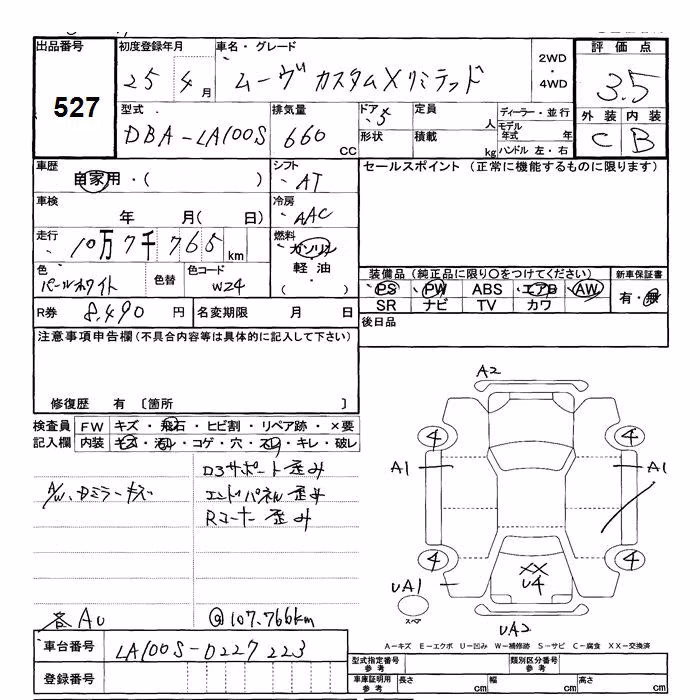 出品番号 初度登録年月 車名・グレード 評価点
527 25 4月 ムーヴ カスタムXリミテッド 2WD・4WD 3.5
型式 排気量 ドア 定員 ディーラー・並行 外装 内装
DBA-LA100S 660 CC 5 人 モデル年式 年 C B
形状 積載 kg ハンドル 左・右
車歴 自家用・( ) シフト AT セールスポイント (正常に機能するものに限ります)
車検 年 月( 日) 冷房 AAC
走行 10万7千765km 燃料 ガソリン
軽油
・( )
色 パールホワイト 色替 色コード W24 装備品 (純正品に限り○をつけてください) 新車保証書
PS PW ABS エアB AW 有・無
SR ナビ TV カワ
R券 8,490円 名変期限 月 日 後日品
注意事項申告欄(不具合内容等は具体的に記入して下さい)
修復歴 有 〔箇所 〕
検査員 FW キズ・飛石・ヒビ割・リペア跡・×要
記入欄 内装 キズ・汚レ・コゲ・穴・スレ・キレ・破レ
D3サポート歪み
A/W、Dミラーキズ エンドパネル歪み
Rコーナー歪み
各AU @107.766km
A2
4 4
A1 A1
4 4
XX
U4
UA1
スペア
UA2
A-キズ E-エクボ U-凹み W-補修跡 S-サビ C-腐食 XX-交換済
車台番号 LA100S-0227223
登録番号
型式指定番号 参考 類別区分番号 参考
車庫証明用 参考 長さ cm 幅 cm 高さ cm